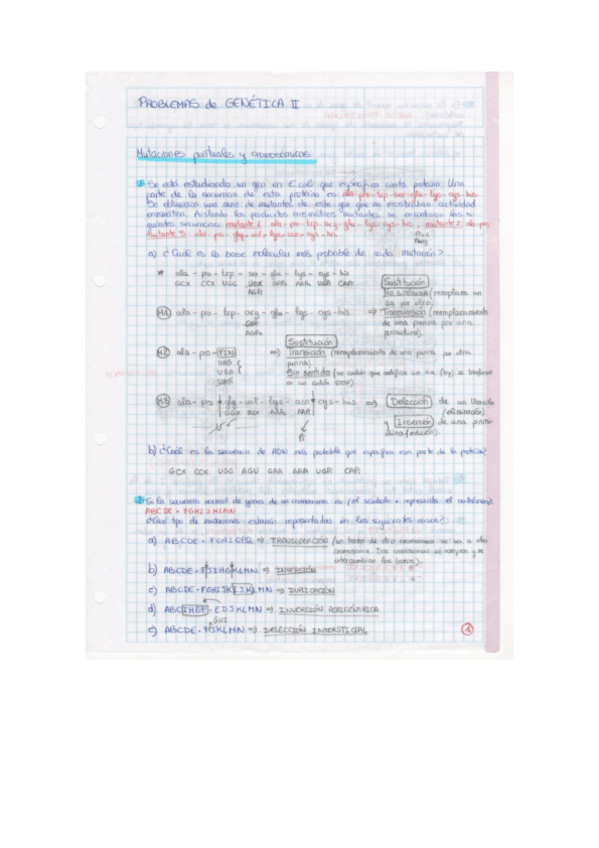 PROBLEMAS de GENÉTICA II
Mutaciones puntuales y cromosómicas
1 Se está estudiando un gen en E. coli que especifica cierta proteína. Una
parte de la secuencia de esta proteína es ala-pro-trp-ser-glu-lys-cys-his.
Se obtuvieron una serie de mutantes de este gen que no mostraban actividad
enzimática. Aislando los productos enzimáticos mutantes se encontraron las si-
guientes secuencias: mutante 1: ala-pro-trp-arg-glu-lys-cys-his, mutante 2: ala-pro,
mutante 3: ala-pro-gly-val-lys-asn-cys-his
a) ¿Cuál es la base molecular más probable de cada mutación?
* ala - pro - trp - ser - glu - lys - cys - his
GCX CCX UGG
Sustitución
No sinónima (reemplaza un
aa por otro)
M1 ala - pro - trp - arg - glu - lys - cys - his ⇒ Transversión (reemplazamiento
de una purina por una
pirimidina)
Sustitución
M2 ala - pro - FIN ⇒ Transición (reemplazamiento de una purina por otra
purina)
UAG
UGA
UAA
Sin sentido (un codón que codifica un aa (trp) se transforma
en un codón stop)
M3 ala - pro gly - val - lys - asn cys - his ⇒ Delección de un
(eliminación)
y Inserción de una pirimi-
dina (adición).
b) ¿Cuál es la secuencia de ADN más probable que especifica esa parte de la proteína?
GCX CCX UGG AGU GAA AAA UGP CAP
2 Si la secuencia normal de genes de un cromosoma es (el símbolo • representa el centrómero):
ABCDE • FGHIJKLMN
¿Qué tipo de mutaciones estarían representadas en los siguientes casos?
a) ABCDE • FGHIOPQ ⇒ TRANSLOCACIÓN (un trozo de otro cromosoma se va a otro
cromosoma. Dos cromosomas se rompen y se
intercambian los trozos).
b) ABCDE • FJIHGKLMN ⇒ INVERSIÓN
c) ABCDE • FGHIJKIJKLMN ⇒ DUPLICACIÓN
d) ABCIHGF • EDJKLMN ⇒ INVERSIÓN PERICÉNTRICA
GHI
e) ABCDE • FJKLMN ⇒ DELECCIÓN INTERSTICIAL
1